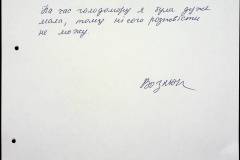 На час голодомору я була дуже
мала, тому нічого розповісти
не можу
Вознюк